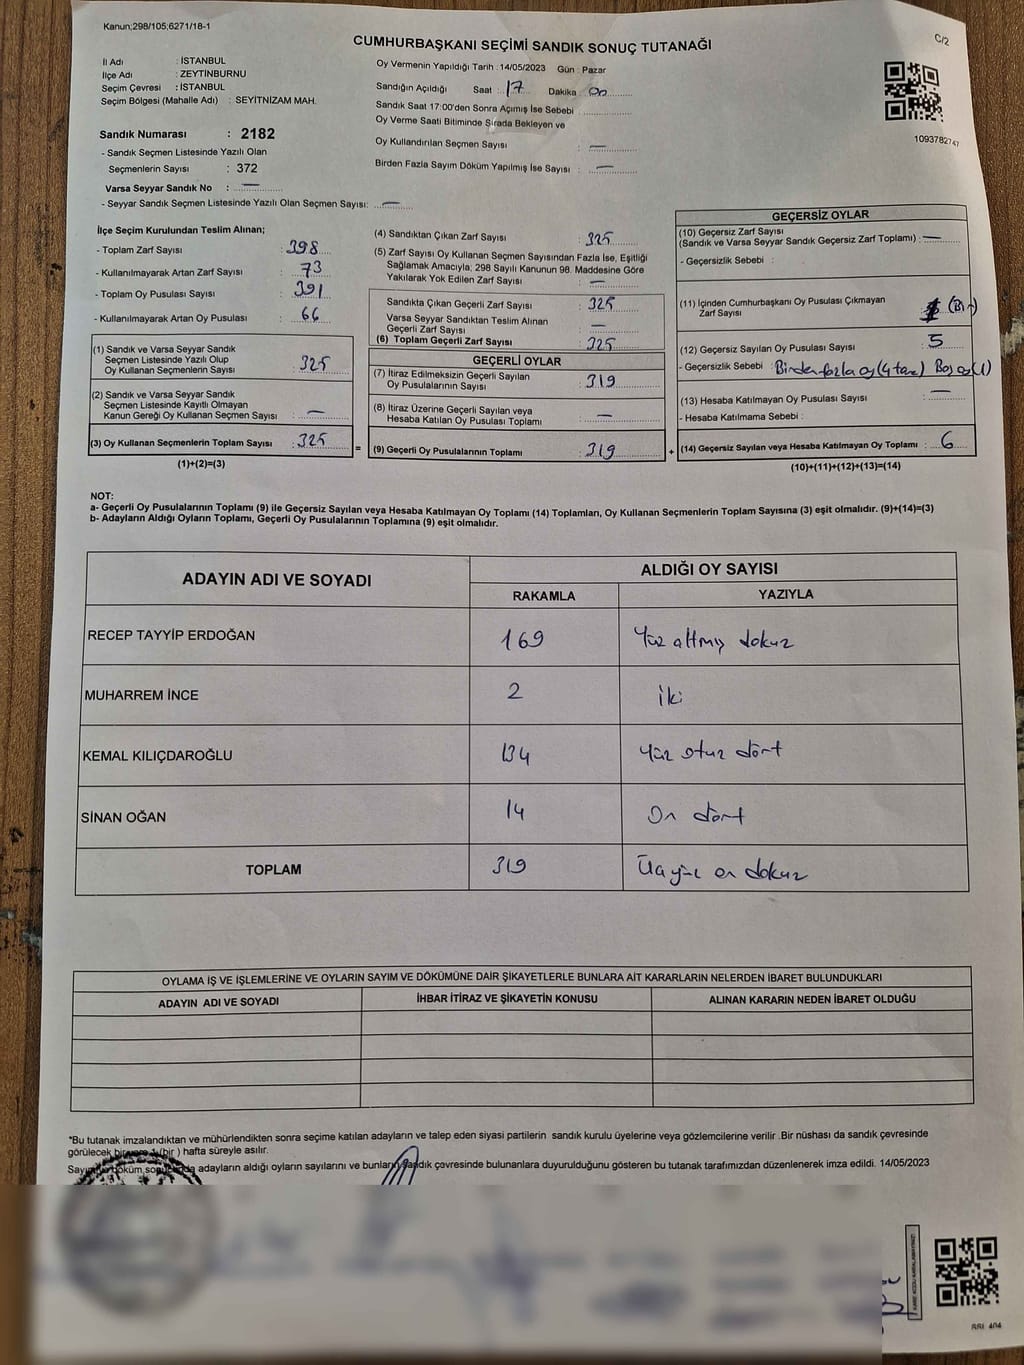 Kanun;298/105;6271/18-1
C/2
CUMHURBAŞKANI SEÇİMİ SANDIK SONUÇ TUTANAĞI
İl Adı : İSTANBUL
İlçe Adı : ZEYTİNBURNU
Seçim Çevresi : İSTANBUL
Seçim Bölgesi (Mahalle Adı) : SEYİTNİZAM MAH.
Sandık Numarası : 2182
- Sandık Seçmen Listesinde Yazılı Olan
Seçmenlerin Sayısı : 372
Varsa Seyyar Sandık No : —
- Seyyar Sandık Seçmen Listesinde Yazılı Olan Seçmen Sayısı: —
Oy Vermenin Yapıldığı Tarih : 14/05/2023 Gün : Pazar
Sandığın Açıldığı Saat : 17 Dakika : On
Sandık Saat 17:00'den Sonra Açımış İse Sebebi :
Oy Verme Saati Bitiminde Sırada Bekleyen ve
Oy Kullandırılan Seçmen Sayısı : —
Birden Fazla Sayım Döküm Yapılmış İse Sayısı : —
1093782747
İlçe Seçim Kurulundan Teslim Alınan;
- Toplam Zarf Sayısı : 398
- Kullanılmayarak Artan Zarf Sayısı : 73
- Toplam Oy Pusulası Sayısı : 391
- Kullanılmayarak Artan Oy Pusulası : 66
(1) Sandık ve Varsa Seyyar Sandık
Seçmen Listesinde Yazılı Olup
Oy Kullanan Seçmenlerin Sayısı : 325
(2) Sandık ve Varsa Seyyar Sandık
Seçmen Listesinde Kayıtlı Olmayan
Kanun Gereği Oy Kullanan Seçmen Sayısı : —
(3) Oy Kullanan Seçmenlerin Toplam Sayısı : 325
(1)+(2)=(3)
(4) Sandıktan Çıkan Zarf Sayısı : 325
(5) Zarf Sayısı Oy Kullanan Seçmen Sayısından Fazla İse, Eşitliği
Sağlamak Amacıyla; 298 Sayılı Kanunun 98. Maddesine Göre
Yakılarak Yok Edilen Zarf Sayısı : —
Sandıkta Çıkan Geçerli Zarf Sayısı : 325
Varsa Seyyar Sandıktan Teslim Alınan
Geçerli Zarf Sayısı : —
(6) Toplam Geçerli Zarf Sayısı : 325
GEÇERLİ OYLAR
(7) İtiraz Edilmeksizin Geçerli Sayılan
Oy Pusulalarının Sayısı : 319
(8) İtiraz Üzerine Geçerli Sayılan veya
Hesaba Katılan Oy Pusulası Toplamı : —
= (9) Geçerli Oy Pusulalarının Toplamı : 319 +
GEÇERSİZ OYLAR
(10) Geçersiz Zarf Sayısı
(Sandık ve Varsa Seyyar Sandık Geçersiz Zarf Toplamı) : —
- Geçersizlik Sebebi :
(11) İçinden Cumhurbaşkanı Oy Pusulası Çıkmayan
Zarf Sayısı : 1 (Bir)
(12) Geçersiz Sayılan Oy Pusulası Sayısı : 5
- Geçersizlik Sebebi : Birden fazla oy (4 tane) Boş oy (1)
(13) Hesaba Katılmayan Oy Pusulası Sayısı : —
- Hesaba Katılmama Sebebi :
(14) Geçersiz Sayılan veya Hesaba Katılmayan Oy Toplamı : 6
(10)+(11)+(12)+(13)=(14)
NOT:
a- Geçerli Oy Pusulalarının Toplamı (9) ile Geçersiz Sayılan veya Hesaba Katılmayan Oy Toplamı (14) Toplamları, Oy Kullanan Seçmenlerin Toplam Sayısına (3) eşit olmalıdır. (9)+(14)=(3)
b- Adayların Aldığı Oyların Toplamı, Geçerli Oy Pusulalarının Toplamına (9) eşit olmalıdır.
ADAYIN ADI VE SOYADI ALDIĞI OY SAYISI
RAKAMLA YAZIYLA
RECEP TAYYİP ERDOĞAN 169 Yüz altmış dokuz
MUHARREM İNCE 2 iki
KEMAL KILIÇDAROĞLU 134 Yüz otuz dört
SİNAN OĞAN 14 On dört
TOPLAM 319 Üçyüz on dokuz
OYLAMA İŞ VE İŞLEMLERİNE VE OYLARIN SAYIM VE DÖKÜMÜNE DAİR ŞİKAYETLERLE BUNLARA AİT KARARLARIN NELERDEN İBARET BULUNDUKLARI
ADAYIN ADI VE SOYADI İHBAR İTİRAZ VE ŞİKAYETİN KONUSU ALINAN KARARIN NEDEN İBARET OLDUĞU
*Bu tutanak imzalandıktan ve mühürlendikten sonra seçime katılan adayların ve talep eden siyasi partilerin sandık kurulu üyelerine veya gözlemcilerine verilir .Bir nüshası da sandık çevresinde
görülecek bir yere 1 (bir ) hafta süreyle asılır.
Sayım ve döküm sonucunda adayların aldığı oyların sayılarını ve bunların sandık çevresinde bulunanlara duyurulduğunu gösteren bu tutanak tarafımızdan düzenlenerek imza edildi. 14/05/2023